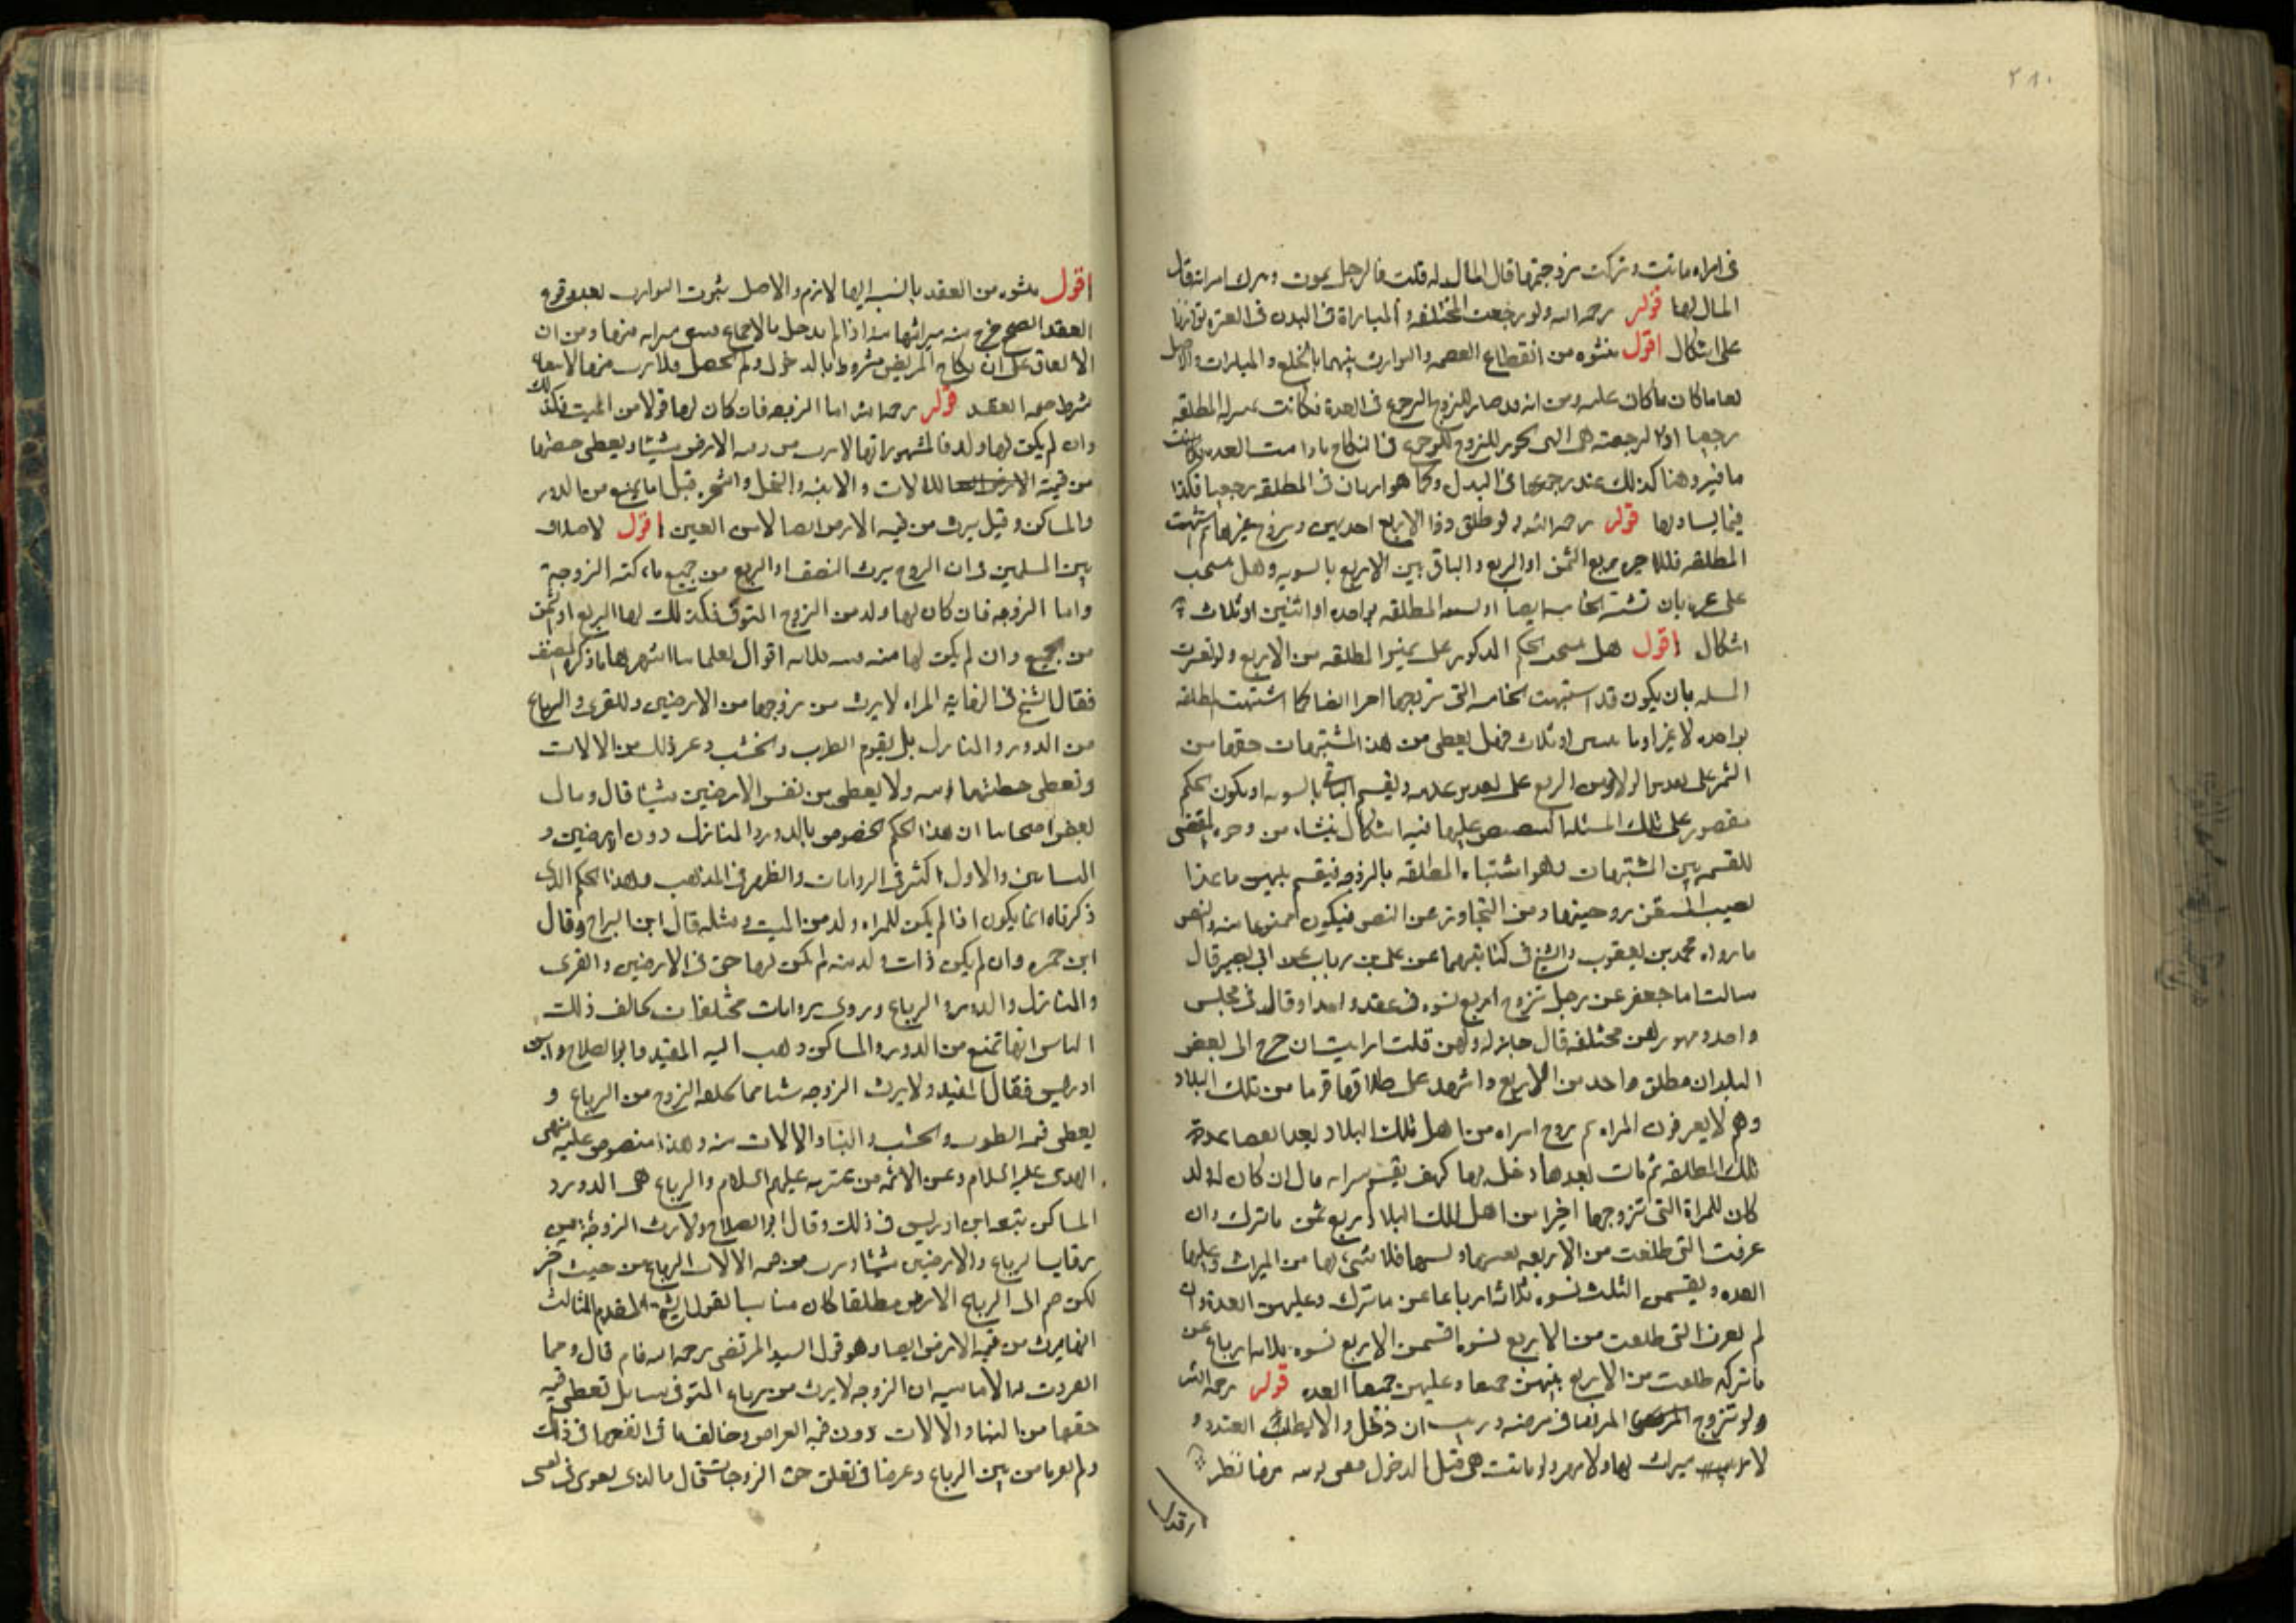 ٢٨٠
فى امراه ماتت وتركت زوجها قال المال له قلت فالرجل يموت وترك امراته قال
المال لها قوله رحمه الله ولو رجعت المختلعه او المباراة فى البدل فى العدة توارثا
على اشكال اقول ينشؤه من انقطاع العصمه والتوارث بينهما بالخلع والمبارات والاصل
بقا ما كان ما كان عليه ومن انه قد صار للزوج الرجوع فى العدة فكانت بمنزله المطلقه
رجعيا اذ لا رجعته هى التى يجوز للزوج الرجوع فى النكاح ما دامت العده وكانت
ما فيه وهنا كذلك عند رجوعها فى البدل وكما هو ارثان فى المطلقه رجعيا فكذا
فيما يساويها قوله رحمه الله ولو طلق ذو الاربع احديهن وتزوج غيرها ثم اشتبهت
المطلقه فللاخيره ربع الثمن او الربع والباقى بين الاربع بالسويه وهل ينسحب
على غيره بان تشتبه الخامسه ايضا او تشتبه المطلقه بواحده او اثنين او ثلاث فيه
اشكال اقول هل ينسحب الحكم المذكور على تميز المطلقه من الاربع ولو تغيرت
المسله بان يكون قد اشتبهت الخامسه التى تزوجها اخيرا ايضا كما اشتبهت المطلقه
بواحده لا غير او باثنتين او ثلاث فهل يعطى من هذه المشتبهات حقها من
الثمن على تقدير الولد او من الربع على تقدير عدمه ويقسم الباقى بالسويه او يكون الحكم
مقصور على تلك المسئله المنصوص عليها فيه اشكال ينشا من وجود المقتضى
للقسمه بين المشتبهات وهو اشتباه المطلقه بالزوجه فيقسم بينهن ما عدا
نصيب المتيقن زوجيتها ومن التجاوز عن النص فيكون ممنوعا منه والنص
ما رواه محمد بن يعقوب والشيخ فى كتابيهما عن على بن رياب عن ابى بصير قال
سالت ابا جعفر عن رجل تزوج اربع نسوه فى عقد واحد او قال فى مجلس
واحد ومهورهن مختلفه قال جايز له ولهن قلت ارايت ان خرج الى بعض
البلدان فطلق واحد من الاربع واشهد على طلاقها قوما من تلك البلاد
وهم لا يعرفون المراه ثم تزوج امراه من اهل تلك البلاد بعد انقضا عدة
تلك المطلقه ثم مات بعد ما دخل بها كيف يقسم ميراثه قال ان كان له ولد
كان للمراة التى تزوجها اخيرا من اهل تلك البلاد ربع ثمن ما ترك وان
عرفت التى طلقت من الاربعه بعينها ونسبها فلا شئ لها من الميراث وعليها
العده ويقسمن الثلث نسوه ثلاثة ارباع ثمن ما ترك وعليهن العدة وان
لم تعرف التى طلقت من الاربع نسوه اقتسمن الاربع نسوه ثلاثه ارباع ثمن
ما تركه طلقت من الاربع بينهن جميعا وعليهن جميعا العده قوله رحمه الله
ولو تزوج المريض المريضه فى مرضه ورث ان دخل والا بطل العقد و
لا ميراث لها ولا مهر ولو ماتت هى قبل الدخول ففى ارثه منها نظر
اقول
اقول ينشؤه من العقد بالنسبه اليها لازم والاصل ثبوت التوارث بعد وقوع
العقد الصحيح خرج منه ميراثها منه اذا لم يدخل بالاجماع فيبقى ميراثه منها ومن ان
الاتفاق على ان نكاح المريض مشروط بالدخول ولم يحصل فلا يرث منها لانتفا
شرط صحه العقد قوله رحمه الله اما الزوجه فان كان لها ولد من الميت فكذلك
وان لم يكن لها ولد فالمشهور انها لا ترث من رقبه الارض شيئا ويعطى حصتها
من قيمة الالات والابنيه والنخل والشجر وقيل انما يمنع من الدور
والمساكن وقيل يرث من قيمه الارض ايضا لا من العين اقول لا خلاف
بين المسلمين فى ان الزوج يرث النصف او الربع من جميع ما تركته الزوجة
واما الزوجه فان كان لها ولد من الزوج المتوفى فكذلك لها الربع او الثمن
من الجميع وان لم يكن لها منه ففيه ثلاثه اقوال لعلمائنا اشهرها ما ذكره المصنف
فقال الشيخ فى النهاية المراه لا يرث من زوجها من الارضين والقرى والرباع
من الدور والمنازل بل يقوم الطوب والخشب وغير ذلك من الالات
وتعطى حصتها منه ولا يعطى من نفس الارضين شيئا قال وقال
بعض اصحابنا ان هذا الحكم مخصوص بالدور والمنازل دون الارضين و
البساتين والاول اكثر فى الروايات واظهر فى المذهب وهذا الحكم الذى
ذكرناه انما يكون اذا لم يكن للمراه ولد من الميت ومثله قال ابن البراج وقال
ابن حمزه وان لم يكن ذات ولد منه لم يكن لها حق فى الارضين والقرى
والمنازل والدور والرباع وروى روايات مختلفات يخالف ذلك
الثانى انها تمنع من الدور والمساكن ذهب اليه المفيد وابو الصلاح وابن
ادريس فقال المفيد ولا يرث الزوجه شيئا مما يخلفه الزوج من الرباع و
يعطى قيمه الطوب والخشب والبنا والالات منه وهذا منصوص عليه عن نبى
الهدى عليه السلام وعن الائمه من عترته عليهم السلام والرباع هى الدور و
المساكن تبعه ابن ادريس فى ذلك وقال ابو الصلاح ولا يرث الزوجة من
رقاب الرباع والارضين شيئا وترث من قيمه الالات الرباع من حيث اخر
لكن ضم الى الرباع الارض مطلقا كان مناسبا لقول الشيخ المقدم الثالث
انها يرث من قيمه الارض ايضا وهو قول السيد المرتضى رحمه الله فانه قال ومما
انفردت به الاماميه ان الزوجه لا يرث من رباع المتوفى شيئا بل تعطى قيمه
حقها من البنا والالات دون قيمه العراص وخالف باقى الفقها فى ذلك
ولم يفرقوا بين الرباع وغيرها فى تعلق حق الزوجات قال والذى يقوى فى نفسى